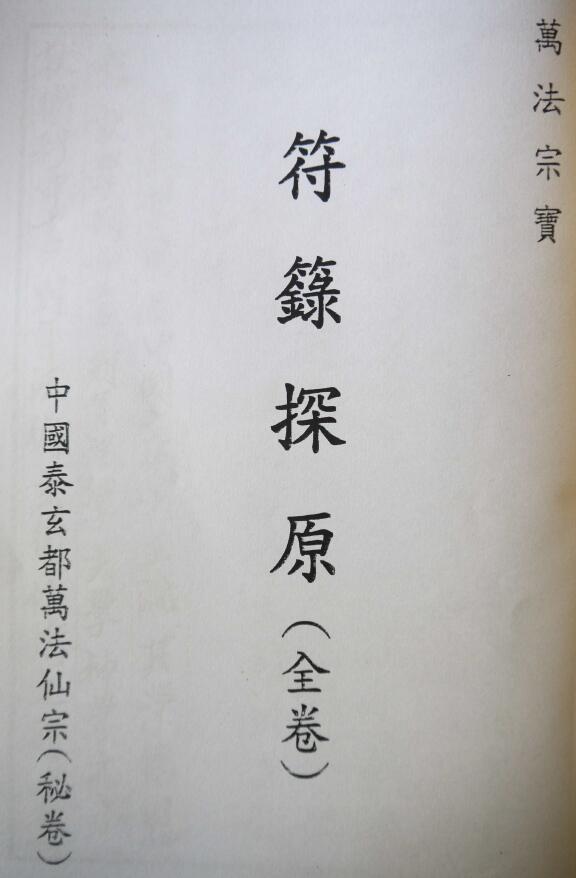 萬法宗寶
符籙探原（全卷）
中國泰玄都萬法仙宗（秘卷）